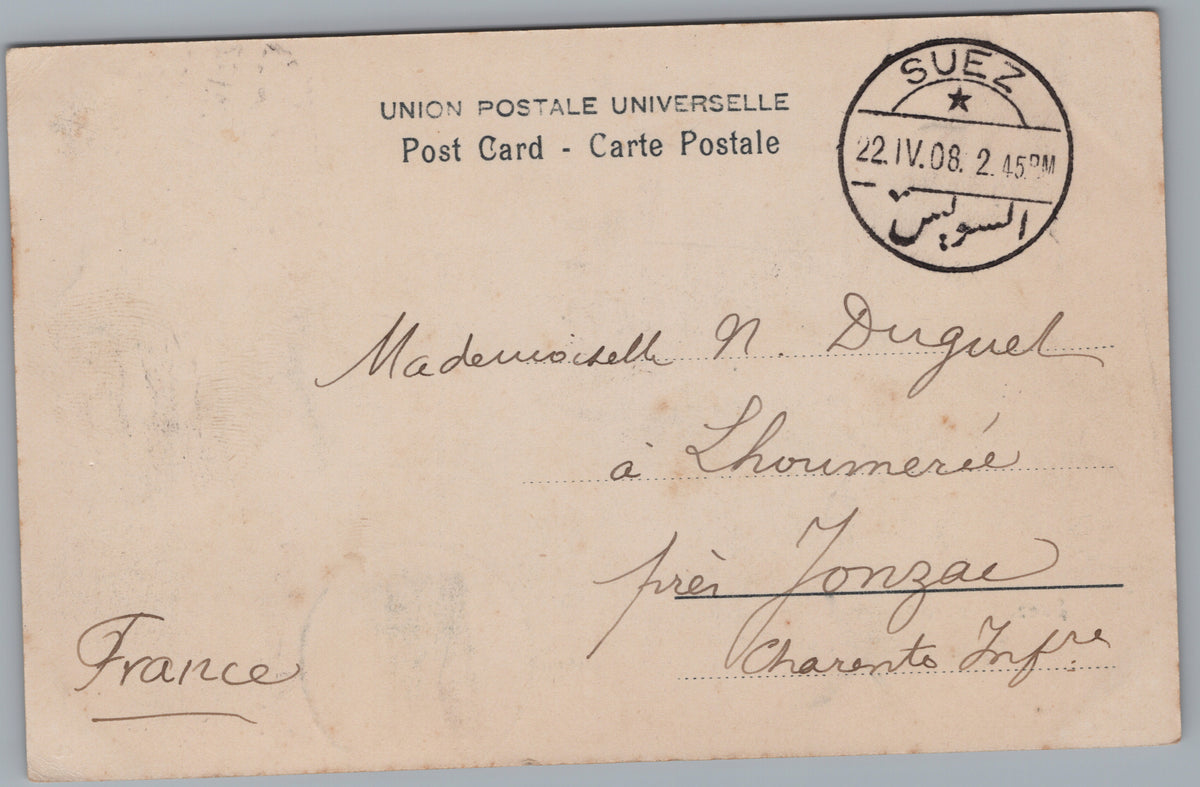 UNION POSTALE UNIVERSELLE
Post Card - Carte Postale
SUEZ
22.IV.08. 2.45PM
السويس
Mademoiselle N. Duguet
à Lhoumerée
près Jonzac
Charente Infre
France